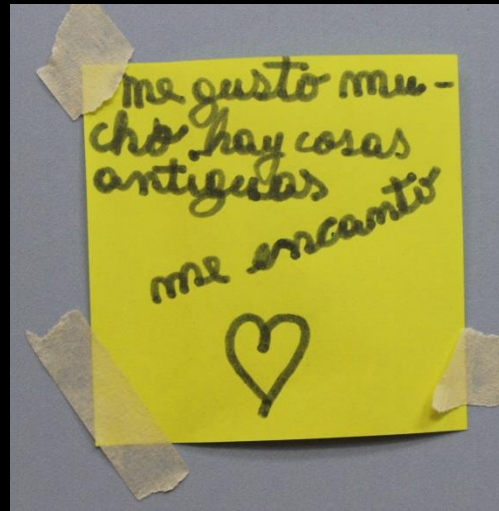 me gusto mu-
cho. hay cosas
antiguas
me encanto